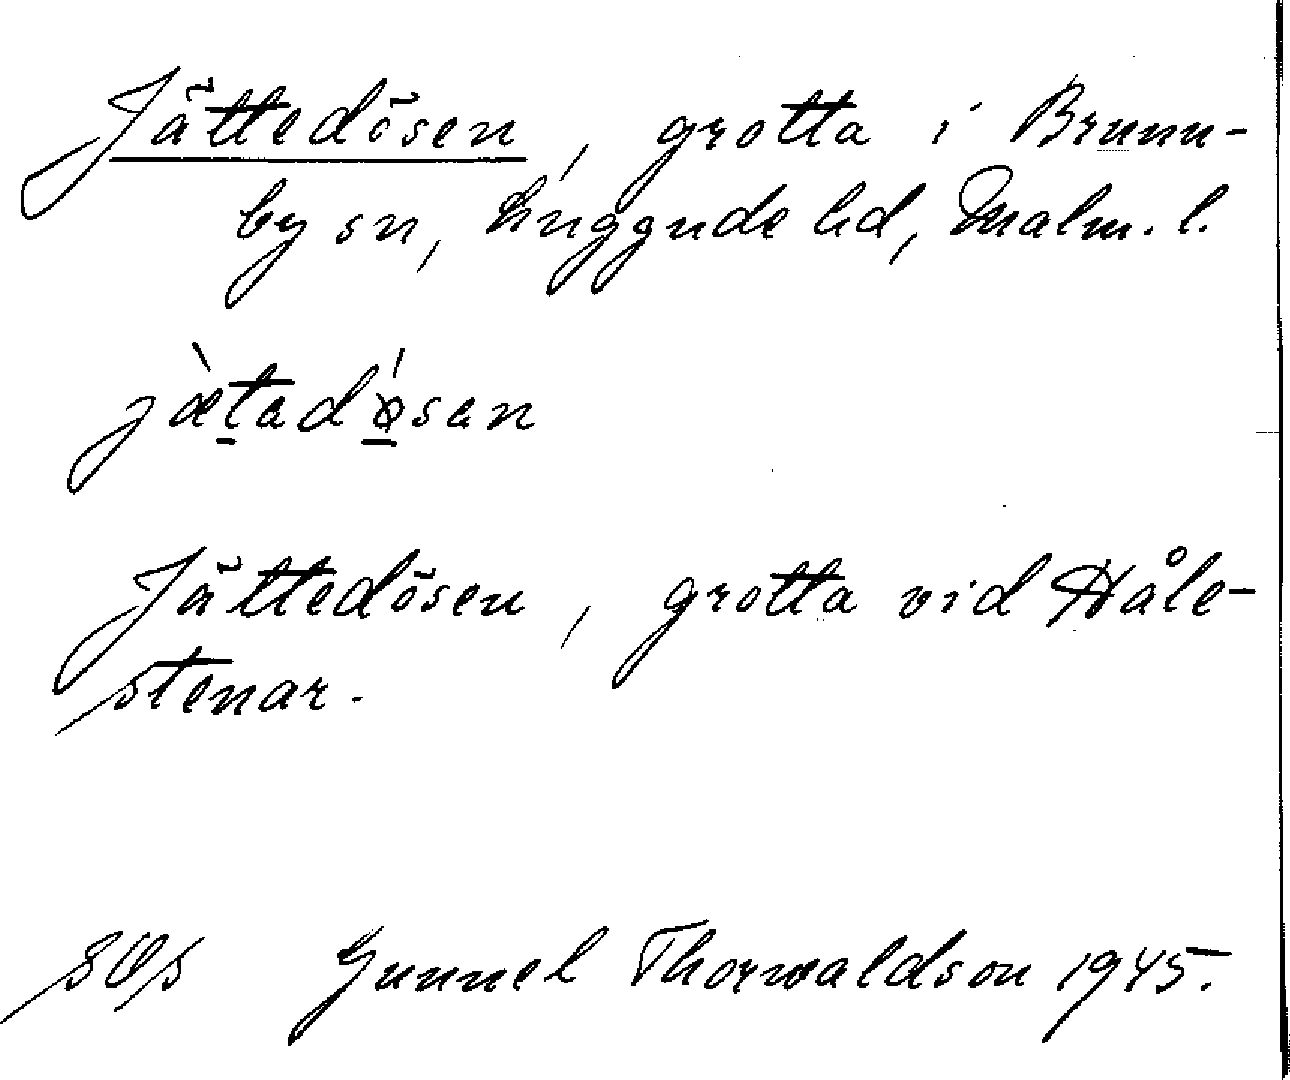 Jättedösen, grotta i Brunn-
by sn, Luggude hd, Malm. l.
jæ̀tadǿsan
Jättedösen, grotta vid Håle-
stenar.
Gunnel Thorwaldson 1945.